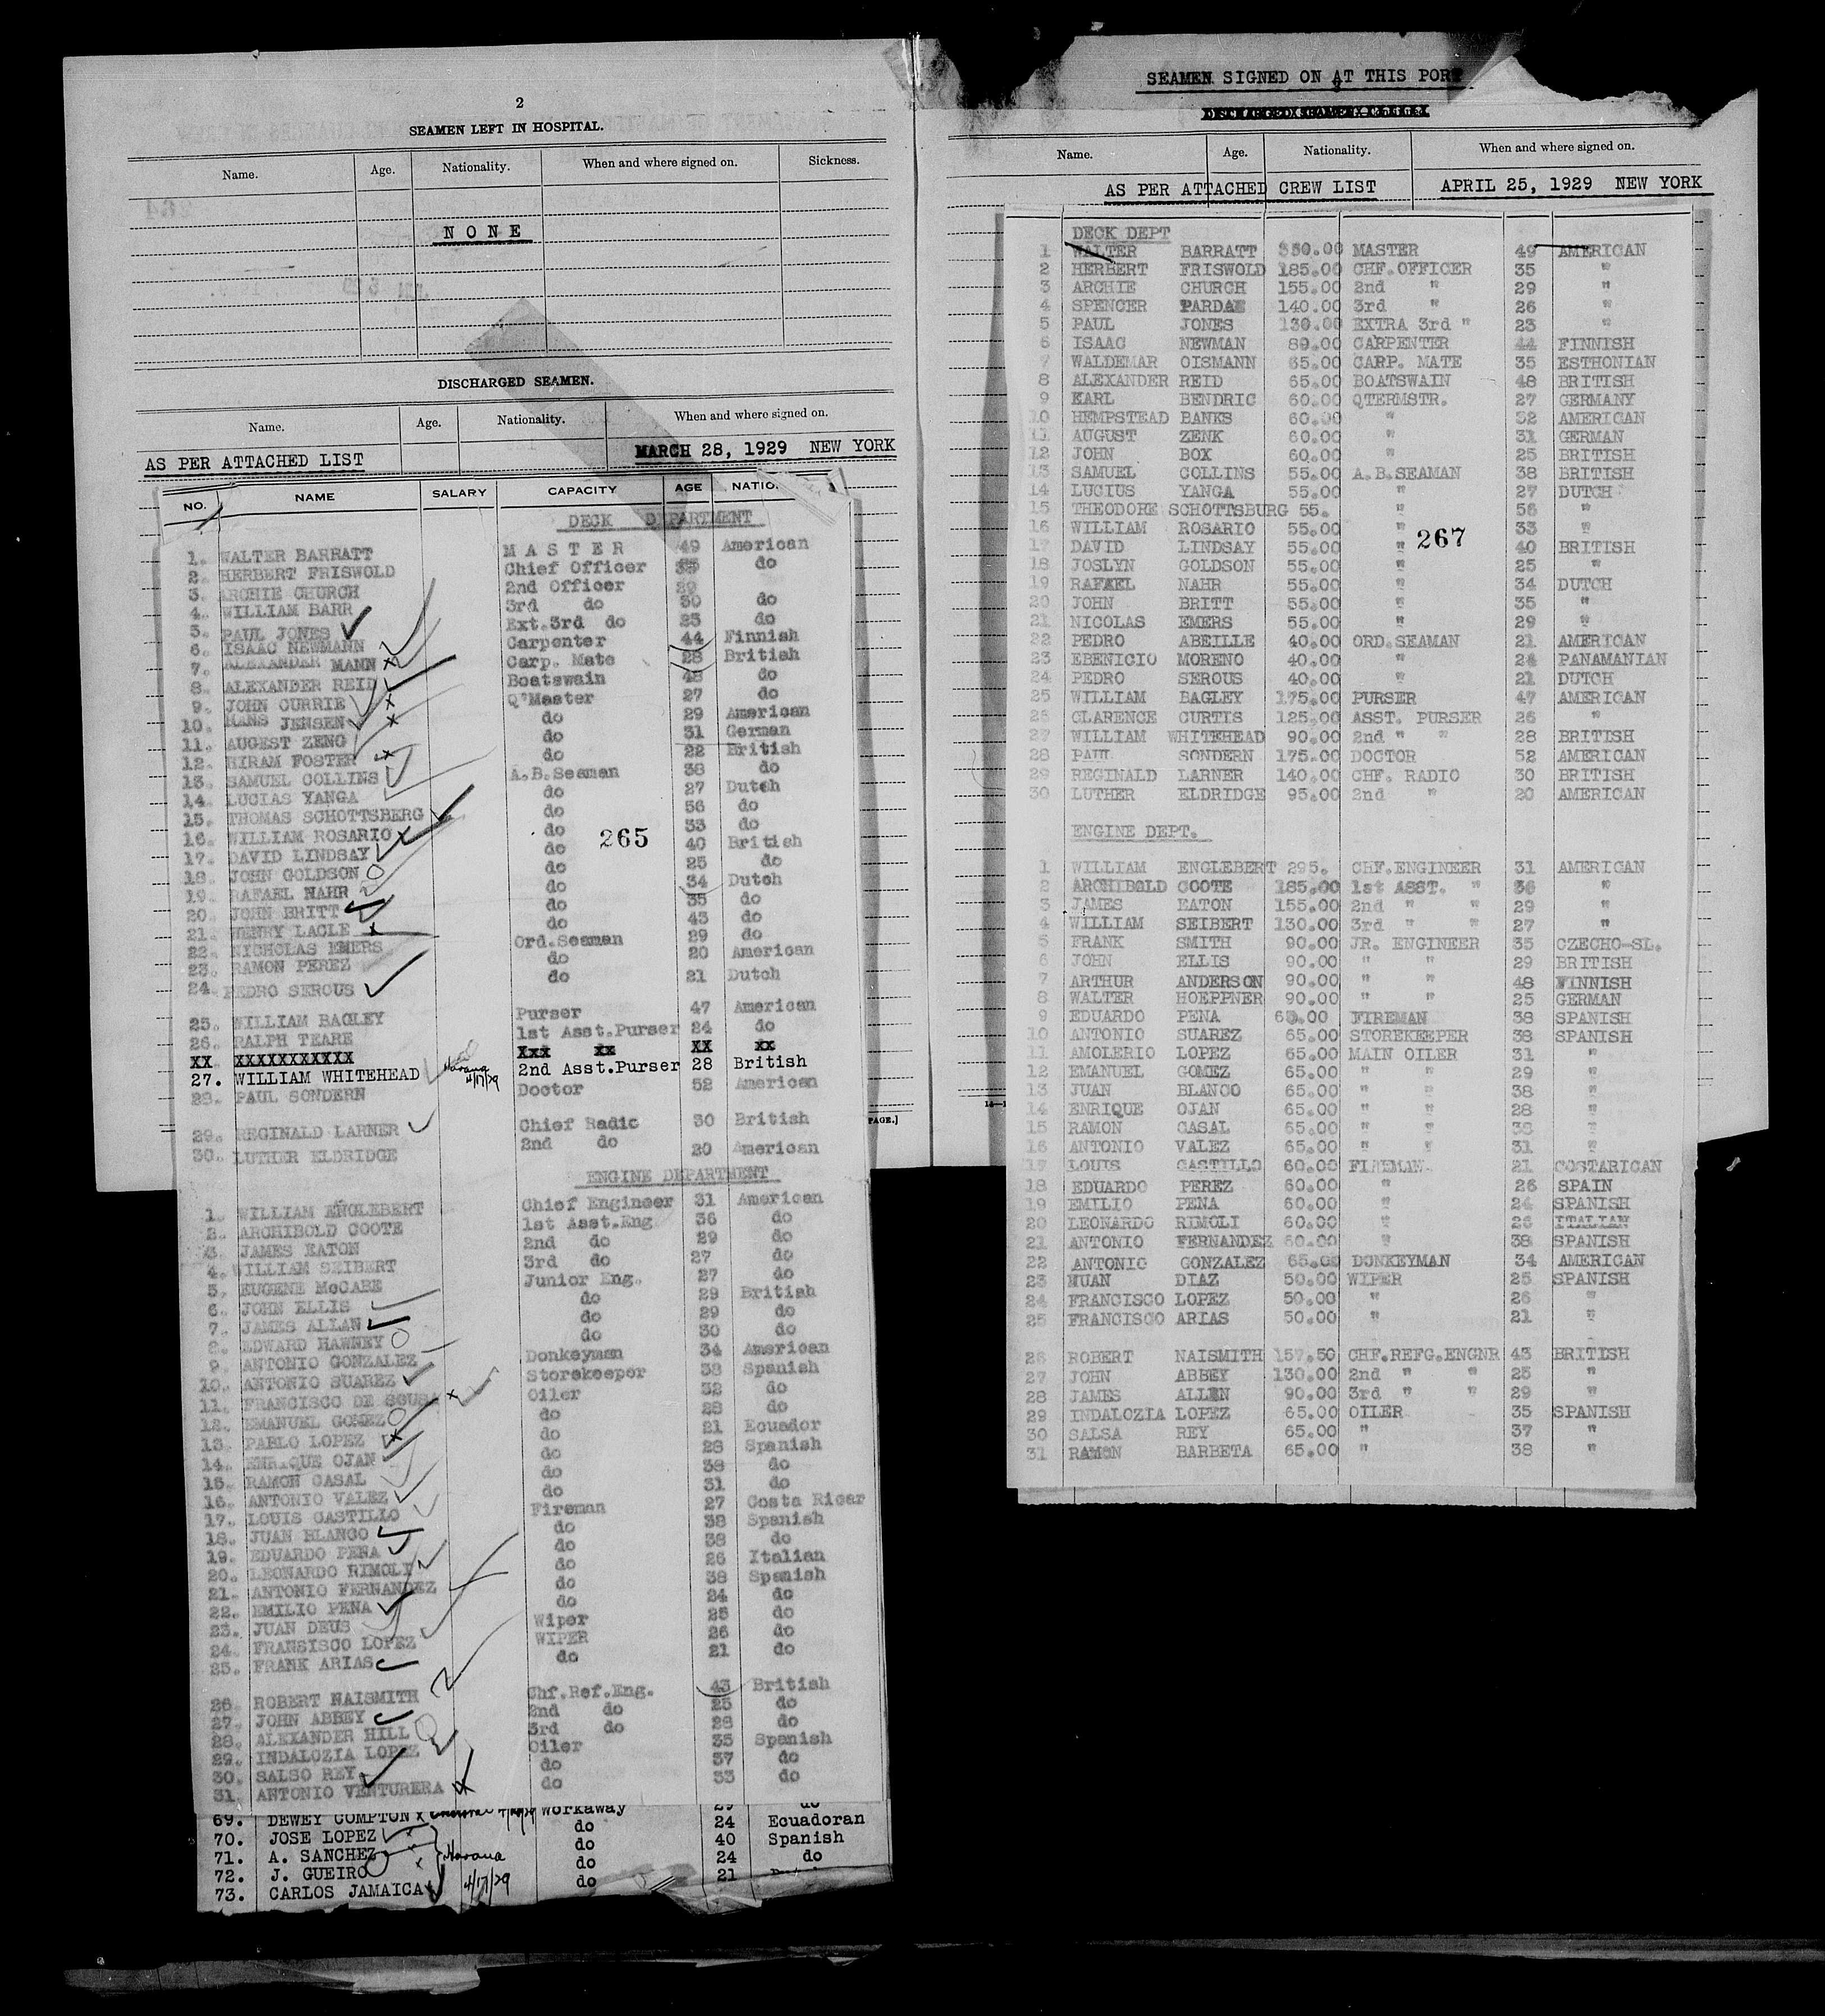 2
SEAMEN LEFT IN HOSPITAL.
Name. Age. Nationality. When and where signed on. Sickness.
NONE
DISCHARGED SEAMEN.
Name. Age. Nationality. When and where signed on.
AS PER ATTACHED LIST MARCH 28, 1929 NEW YORK
NO. NAME SALARY CAPACITY AGE
DECK DEPARTMENT
1. WALTER BARRATT MASTER 49 American
2. HERBERT FRISWOLD Chief Officer 35 do
3. ARCHIE CHURCH 2nd Officer 29
4. WILLIAM BARR 3rd do 30 do
5. PAUL JONES Ext.3rd do 23 do
6. ISAAC NEWMANN Carpenter 44 Finnish
7. ALEXANDER MANN Carp. Mate 28 British
8. ALEXANDER REID Boatswain 48 do
9. JOHN CURRIE Q'Master 27 do
10. HANS JENSEN do 29 American
11. AUGEST ZENG do 31 German
12. HIRAM FOSTER do 22 British
13. SAMUEL COLLINS A.B.Seaman 38 do
14. LUCIAS YANGA do 27 Dutch
15. THOMAS SCHOTTSBERG do 56 do
16. WILLIAM ROSARIO do 33 do
17. DAVID LINDSAY do 40 British
265
18. JOHN GOLDSON do 25 do
19. RAFAEL NAHR do 34 Dutch
20. JOHN BRITT do 35 do
21. HENRY LACLE do 43 do
22. NICHOLAS EMERS Ord.Seaman 29 do
23. RAMON PEREZ do 20 American
24. PEDRO SEROUS do 21 Dutch
25. WILLIAM BAGLEY Purser 47 American
26. RALPH TEARE 1st Asst.Purser 24 do
XX XXXXXXXXXXX Xxx xx XX xx
27. WILLIAM WHITEHEAD Havana 4/17/29 2nd Asst.Purser 28 British
28. PAUL SONDERN Doctor 52 American
29. REGINALD LARNER Chief Radio 30 British
30. LUTHER ELDRIDGE 2nd do 20 American
PAGE.]
ENGINE DEPARTMENT
1. WILLIAM ENGLEBERT Chief Engineer 31 American
2. ARCHIBOLD COOTE 1st Asst.Eng. 36 do
3. JAMES EATON 2nd do 29 do
4. WILLIAM SEIBERT 3rd do 27 do
5. EUGENE McCABE Junior Eng. 27 do
6. JOHN ELLIS do 29 British
7. JAMES ALLAN do 29 do
8. EDWARD HAWNEY do 30 do
9. ANTONIO GONZALEZ Donkeyman 34 American
10. ANTONIO SUAREZ Storekeeper 38 Spanish
11. FRANCISCO DE SOUSA Oiler 32 do
12. EMANUEL GOMEZ do 28 do
13. PABLO LOPEZ do 21 Ecuador
14. ENRIQUE OJAN do 28 Spanish
15. RAMON CASAL do 38 do
16. ANTONIO VALEZ do 31 do
17. LOUIS CASTILLO Fireman 27 Costa Rican
18. JUAN BLANCO do 38 Spanish
19. EDUARDO PENA do 38 do
20. LEONARDO RIMOLI do 26 Italian
21. ANTONIO FERNANDEZ do 38 Spanish
22. EMILIO PENA do 24 do
23. JUAN DEUS Wiper 25 do
24. FRANSISCO LOPEZ WIPER 26 do
25. FRANK ARIAS do 21 do
26. ROBERT NAISMITH Chf.Ref.Eng. 43 British
27. JOHN ABBEY 2nd do 25 do
28. ALEXANDER HILL 3rd do 28 do
29. INDALOZIA LOPEZ Oiler 35 Spanish
30. SALSO REY do 37 do
31. ANTONIO VENTURERA do 33 do
69. DEWEY COMPTON Workaway 29 do
70. JOSE LOPEZ do 24 Ecuadoran
71. A. SANCHEZ Havana do 40 Spanish
72. J. GUEIRO do 24 do
73. CARLOS JAMAICA 4/17/29 do 21
SEAMEN SIGNED ON AT THIS PORT
Name. Age. Nationality. When and where signed on.
AS PER ATTACHED CREW LIST APRIL 25, 1929 NEW YORK
DECK DEPT
1 WALTER BARRATT 350.00 MASTER 49 AMERICAN
2 HERBERT FRISWOLD 185.00 CHF.OFFICER 35 "
3 ARCHIE CHURCH 155.00 2nd " 29 "
4 SPENCER PARDAE 140.00 3rd " 26 "
5 PAUL JONES 130.00 EXTRA 3rd " 23 "
6 ISAAC NEWMAN 80.00 CARPENTER 44 FINNISH
7 WALDEMAR OISMANN 65.00 CARP. MATE 35 ESTHONIAN
8 ALEXANDER REID 65.00 BOATSWAIN 48 BRITISH
9 KARL BENDRIC 60.00 QTERMSTR. 27 GERMANY
10 HEMPSTEAD BANKS 60.00 " 32 AMERICAN
11 AUGUST ZENK 60.00 " 31 GERMAN
12 JOHN BOX 60.00 " 25 BRITISH
13 SAMUEL COLLINS 55.00 A.B.SEAMAN 38 BRITISH
14 LUCIUS YANGA 55.00 " 27 DUTCH
15 THEODORE SCHOTTSBURG 55. " 56 "
16 WILLIAM ROSARIO 55.00 " 33 "
267
17 DAVID LINDSAY 55.00 " 40 BRITISH
18 JOSLYN GOLDSON 55.00 " 25 "
19 RAFAEL NAHR 55.00 " 34 DUTCH
20 JOHN BRITT 55.00 " 35 "
21 NICOLAS EMERS 55.00 " 29 "
22 PEDRO ABEILLE 40.00 ORD.SEAMAN 21 AMERICAN
23 EBENICIO MORENO 40.00 " 24 PANAMANIAN
24 PEDRO SEROUS 40.00 " 21 DUTCH
25 WILLIAM BAGLEY 175.00 PURSER 47 AMERICAN
26 CLARENCE CURTIS 125.00 ASST. PURSER 26 "
27 WILLIAM WHITEHEAD 90.00 2nd " " 28 BRITISH
28 PAUL SONDERN 175.00 DOCTOR 52 AMERICAN
29 REGINALD LARNER 140.00 CHF. RADIO 30 BRITISH
30 LUTHER ELDRIDGE 95.00 2nd " 20 AMERICAN
ENGINE DEPT.
1 WILLIAM ENGLEBERT 295. CHF.ENGINEER 31 AMERICAN
2 ARCHIBOLD COOTE 185.00 1st ASST. " 36 "
3 JAMES EATON 155.00 2nd " " 29 "
4 WILLIAM SEIBERT 130.00 3rd " " 27 "
5 FRANK SMITH 90.00 JR. ENGINEER 35 CZECHO-SL.
6 JOHN ELLIS 90.00 " " 29 BRITISH
7 ARTHUR ANDERSON 90.00 " " 48 FINNISH
8 WALTER HOEPPNER 90.00 " " 25 GERMAN
9 EDUARDO PENA 60.00 FIREMAN 38 SPANISH
10 ANTONIO SUAREZ 65.00 STOREKEEPER 38 SPANISH
11 AMOLERIO LOPEZ 65.00 MAIN OILER 31 "
12 EMANUEL GOMEZ 65.00 " " 29 "
13 JUAN BLANCO 65.00 " " 38 "
14 ENRIQUE OJAN 65.00 " " 28 "
15 RAMON CASAL 65.00 " " 38 "
16 ANTONIO VALEZ 65.00 " " 31 "
17 LOUIS CASTILLO 60.00 FIREMAN 21 COSTARICAN
18 EDUARDO PEREZ 60.00 " 26 SPAIN
19 EMILIO PENA 60.00 " 24 SPANISH
20 LEONARDO RIMOLI 60.00 " 26 ITALIAN
21 ANTONIO FERNANDEZ 60.00 " 38 SPANISH
22 ANTONIO GONZALEZ 65.00 DONKEYMAN 34 AMERICAN
23 HUAN DIAZ 50.00 WIPER 25 SPANISH
24 FRANCISCO LOPEZ 50.00 " 26 "
25 FRANCISCO ARIAS 50.00 " 21 "
26 ROBERT NAISMITH 157.50 CHF.REFG.ENGNR 43 BRITISH
27 JOHN ABBEY 130.00 2nd " " 25 "
28 JAMES ALLEN 90.00 3rd " " 29 "
29 INDALOZIA LOPEZ 65.00 OILER 35 SPANISH
30 SALSA REY 65.00 " 37 "
31 RAMON BARBETA 65.00 " 38 "